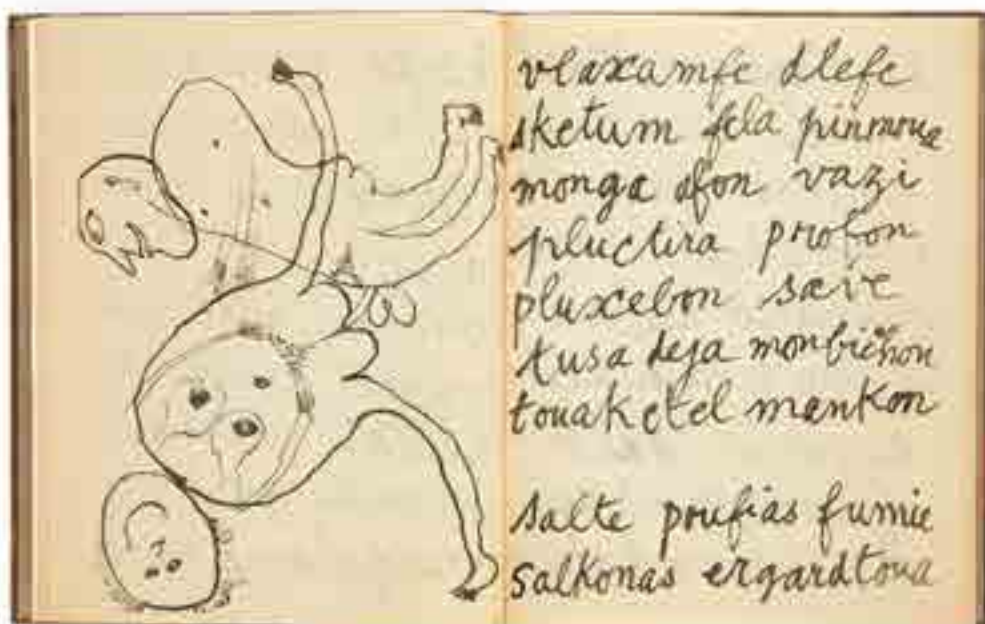 vlaxamfe dlefe
sketum fela pinmoua
monga dfon vazi
pluctira profon
pluxcebon saeve
tusa deja monbichon
touaketel mankon
salte poufias fumie
salkonas ergardtoua